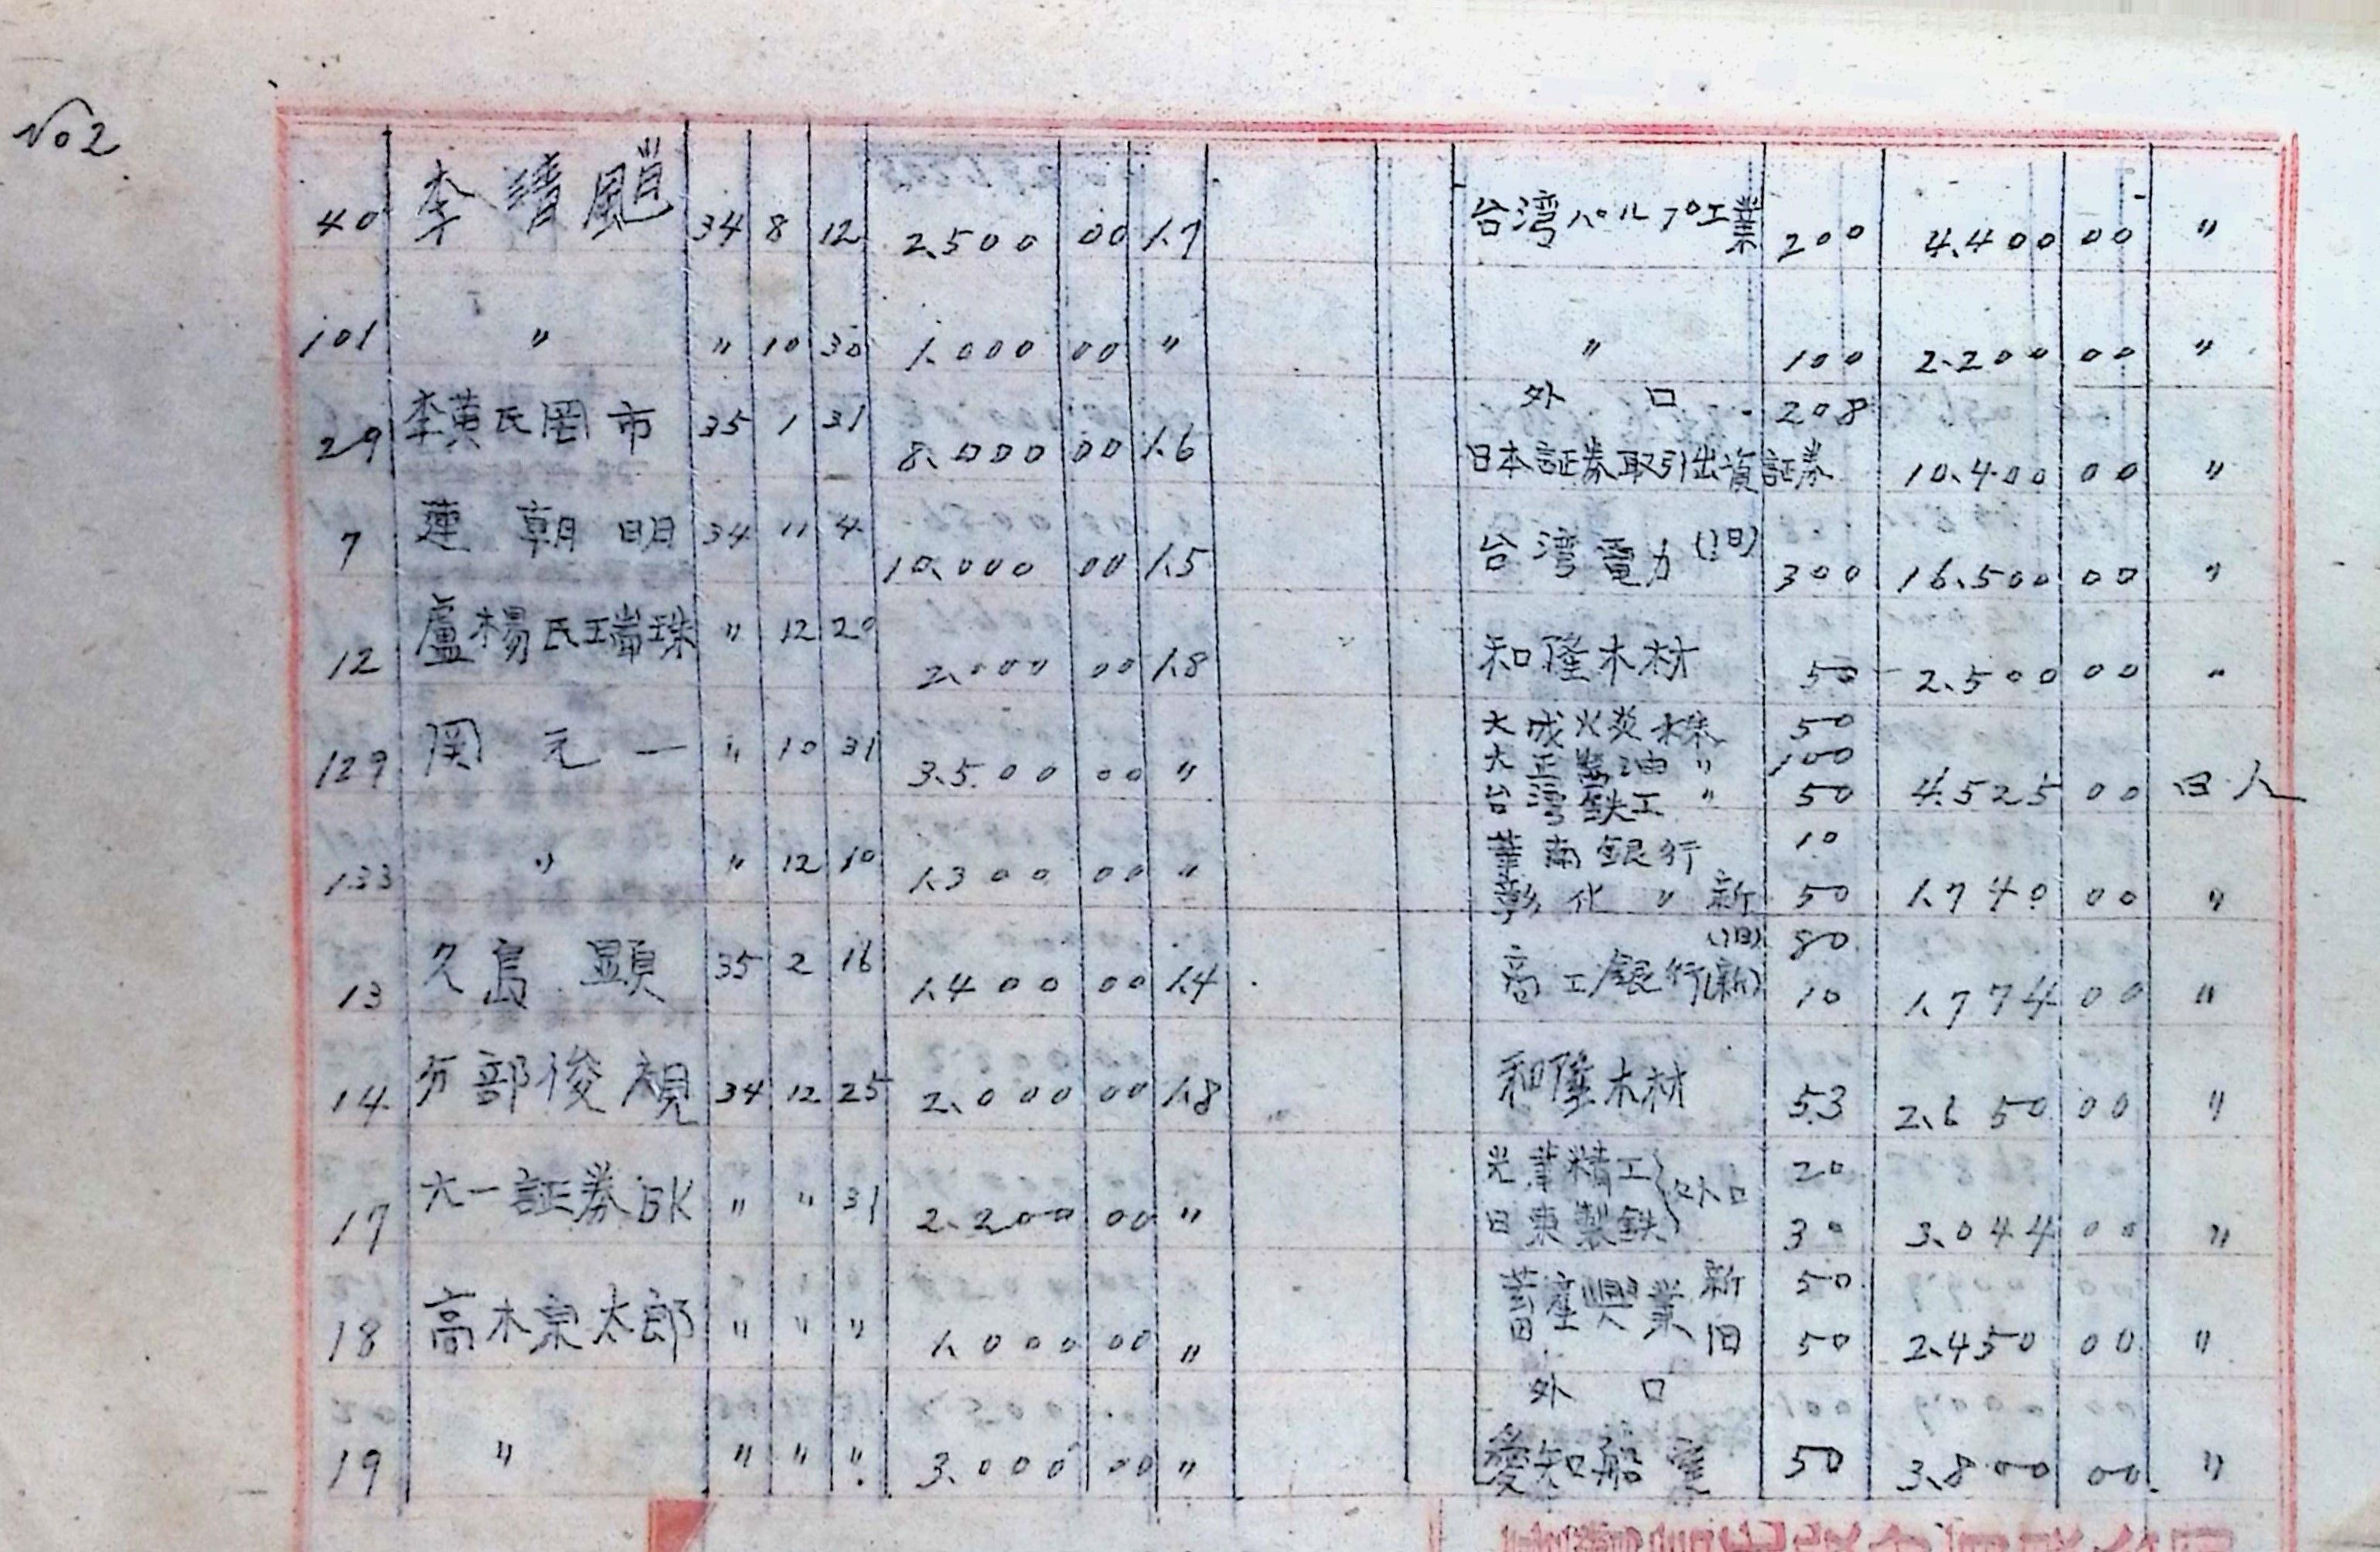 No 2
40 李 清 飈 34 8 12 2.500 00 1.7 台湾パルプ工業 200 4.400 00 〃
101 〃 〃 10 30 1.000 00 〃 〃 100 2.200 00 〃
29 李黄氏罔市 35 1 31 8.000 00 1.6 外 口 208
日本証券取引出資証券 10.400 00 〃
7 蓮 朝 明 34 11 4 10.000 00 1.5 台湾電力(旧) 300 16.500 00 〃
12 盧楊氏瑞珠 〃 12 20 2.000 00 1.8 和隆木材 50 2.500 00 〃
129 関 元 一 〃 10 31 3.500 00 〃 大成火災株 50
大 豊油 〃 100
台湾鉄工 〃 50 4.525 00 日人
133 〃 〃 12 10 1.300 00 〃 華南銀行 10
彰化 〃 新 50 1.740 00 〃
13 久島 顕 35 2 16 1.400 00 1.4 (旧) 80
商工銀行(新) 10 1.774 00 〃
14 分部俊視 34 12 25 2.000 00 1.8 和隆木材 53 2.650 00 〃
17 大一証券BK 〃 〃 31 2.200 00 〃 光華精工 外口 20
日東製鉄 30 3.044 00 〃
18 高木泉太郎 〃 〃 〃 1.000 00 〃 畜産興業 新 50
旧 50 2.450 00 〃
19 〃 〃 〃 〃 3.000 00 〃 外 口
愛知船渠 50 3.800 00 〃